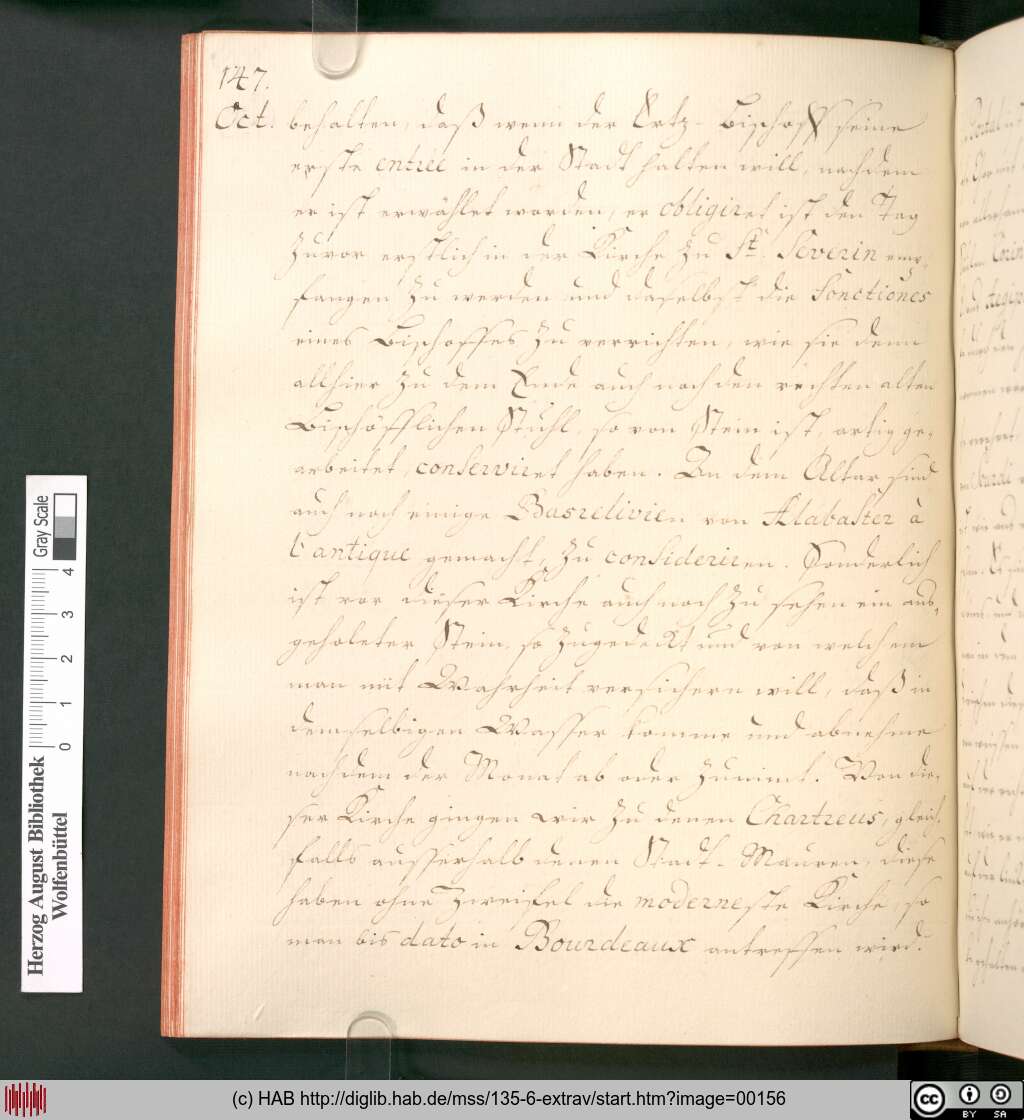 147.
Oct. behalten, daß wenn der Ertz-Bischoff seine
erste entrée in der Stadt halten will, nachdem
er ist erwählet worden, er obligiret ist den Tag
zuvor erstlich in der Kirche zu St. Severin emp-
fangen zu werden und daselbst die Fonctiones
eines Bischoffes zu verrichten, wie sie denn
allhier zu dem Ende auch noch den rechten alten
Bischöfflichen Stuhl, so von Stein ist, artig ge-
arbeitet, conserviret haben. An dem Altar sind
auch noch einige Basrelivien von Alabaster à
l'antique gemacht, zu consideriren. Sonderlich
ist vor dieser Kirche auch noch zu sehen ein aus-
geholeter Stein, so zugedeckt und von welchem
man mit Wahrheit versichern will, daß in
demselbigen Wasser komme und abnehme
nachdem der Monat ab oder zunimt. Von die-
ser Kirche gingen wir zu denen Chartreus, gleich-
falls ausserhalb denen Stadt-Mauren, diese
haben ohne Zweifel die moderneste Kirche, so
man bis dato in Bourdeaux antreffen wird.
Herzog August Bibliothek
Wolfenbüttel
0 1 2 3 4
Gray Scale
(c) HAB http://diglib.hab.de/mss/135-6-extrav/start.htm?image=00156
cc BY SA